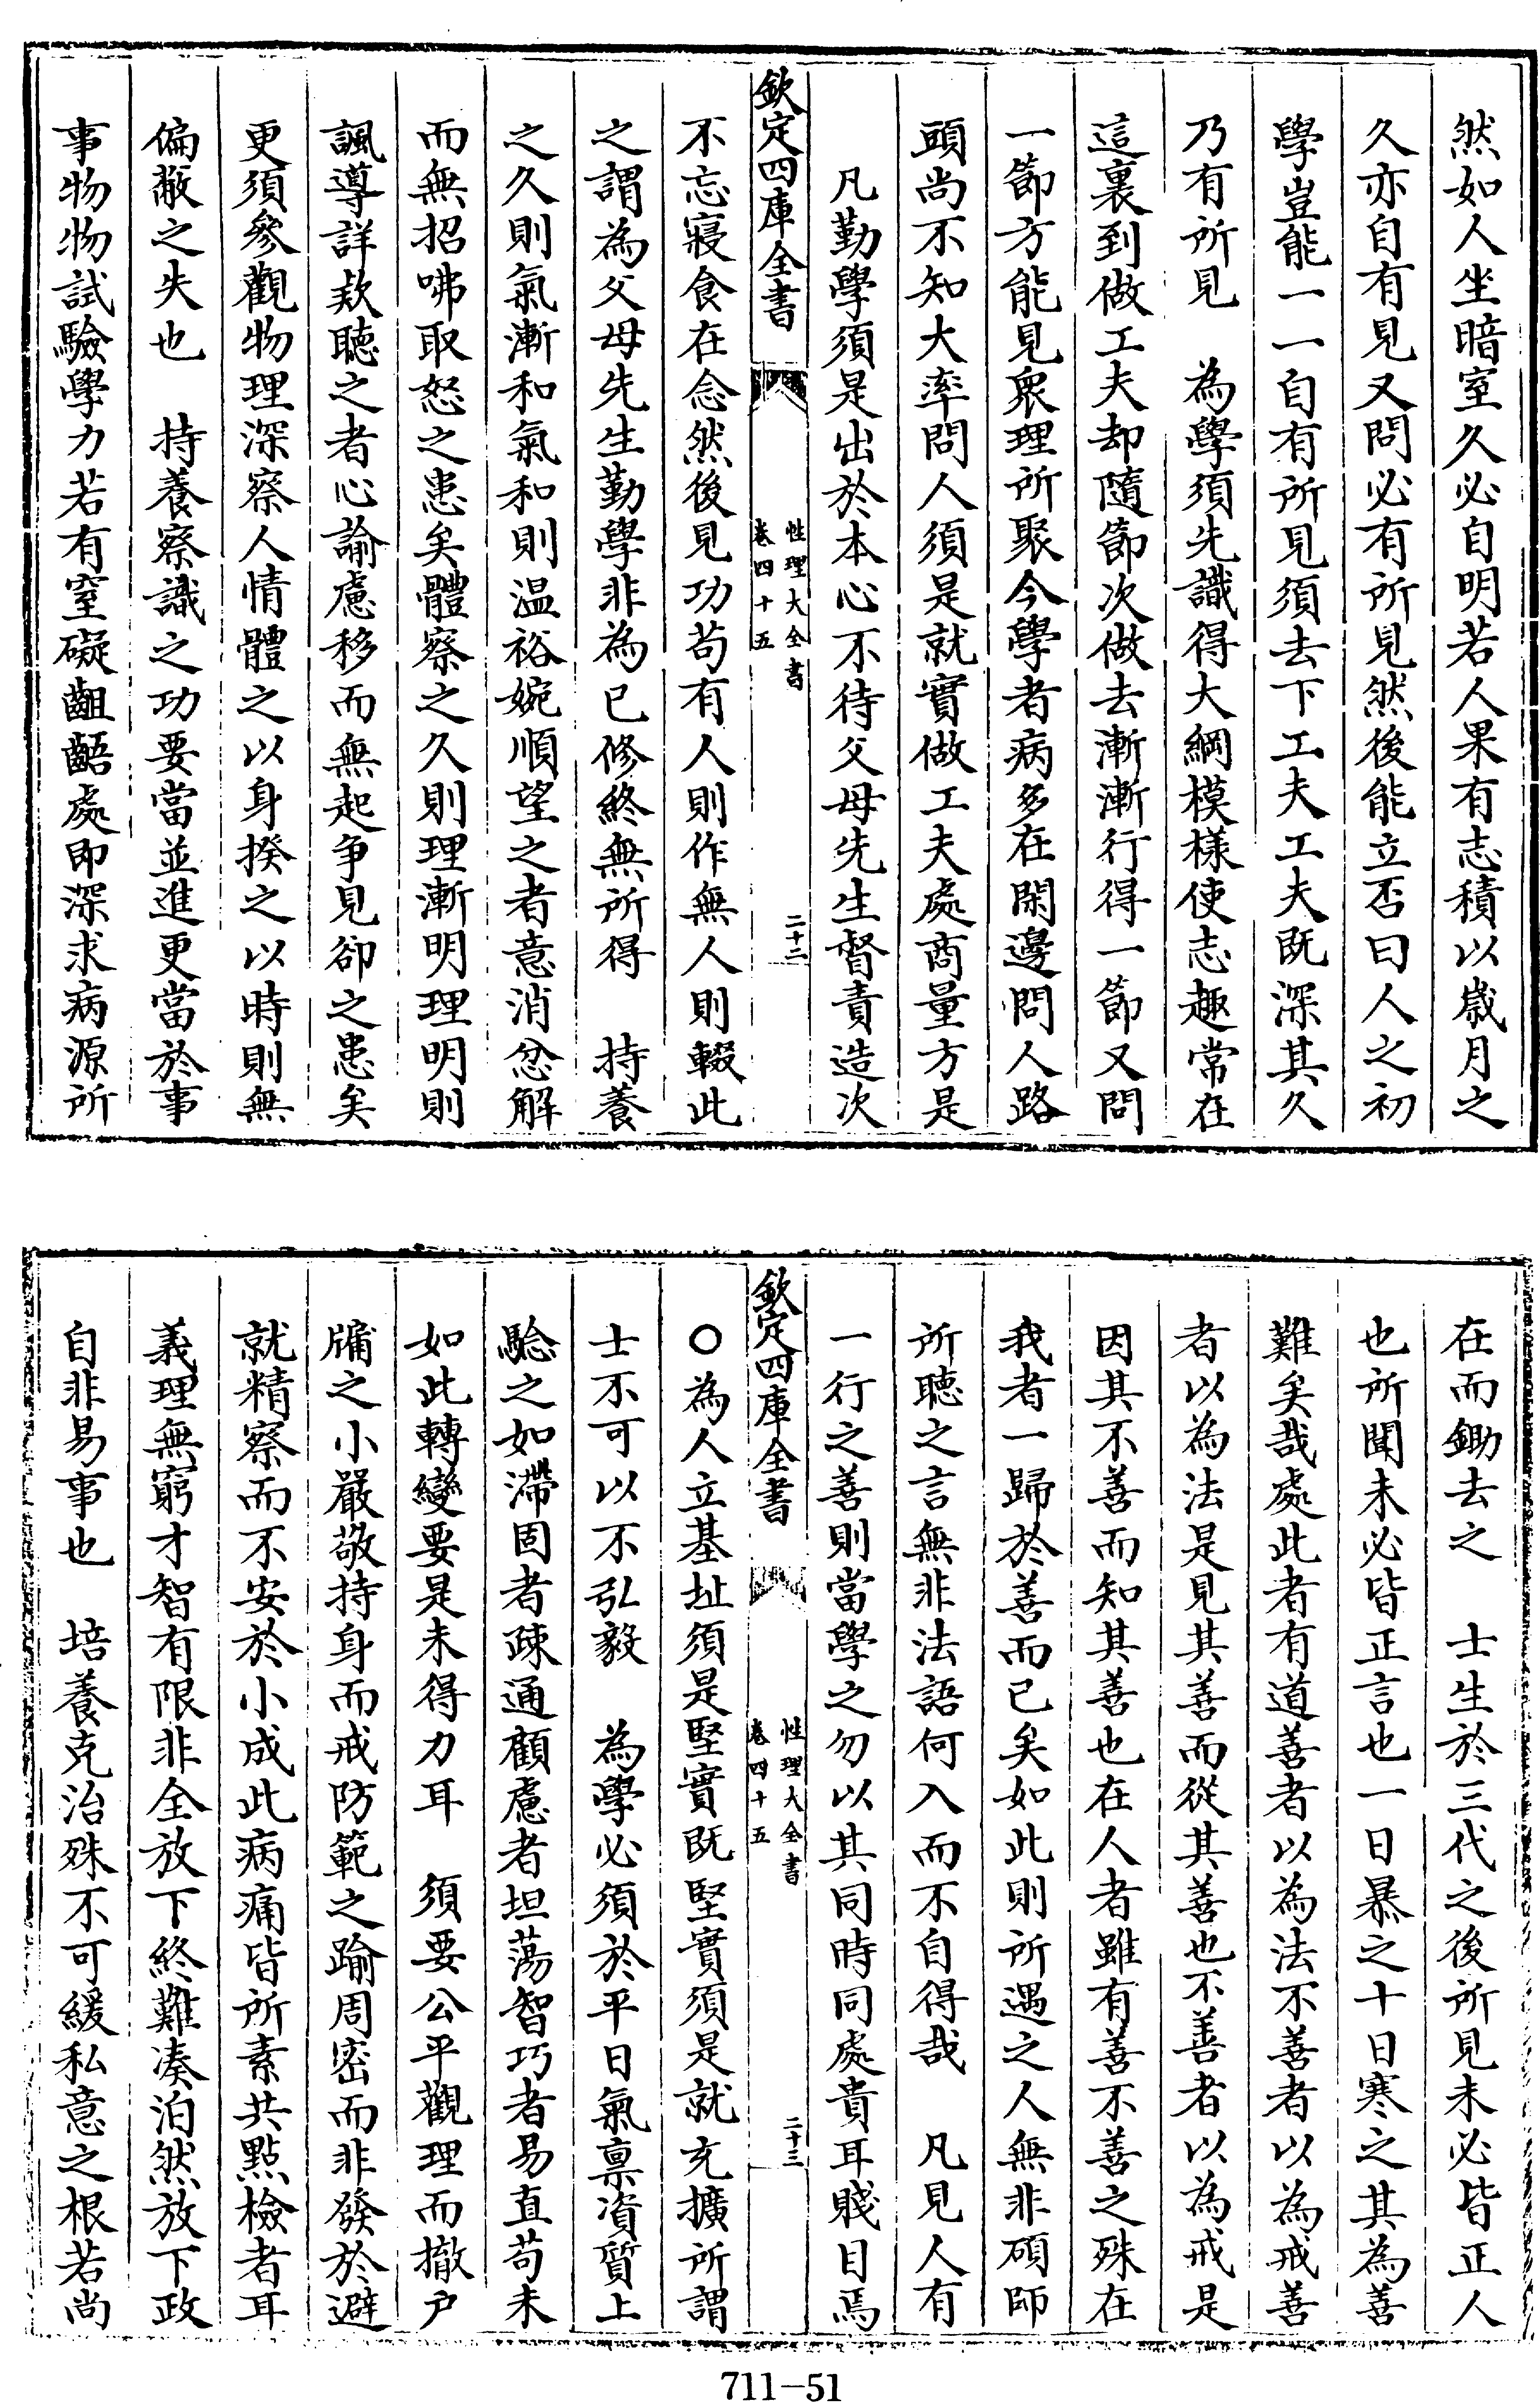 然如人坐暗室久必自明若人果有志積以歲月之
久亦自有見又問必有所見然後能立否曰人之初
學豈能一一自有所見須去下工夫工夫既深其久
乃有所見　為學須先識得大綱模樣使志趣常在
這裏到做工夫却隨節次做去漸漸行得一節又問
一節方能見衆理所聚今學者病多在閑邊問人路
頭尚不知大率問人須是就實做工夫處商量方是
凡勤學須是出於本心不待父母先生督責造次
欽定四庫全書
性理大全書
卷四十五
二十二
不忘寢食在念然後見功苟有人則作無人則輟此
之謂為父母先生勤學非為已修終無所得　持養
之久則氣漸和氣和則溫裕婉順望之者意消忿解
而無招咈取怒之患矣體察之久則理漸明理明則
諷導詳款聽之者心諭慮移而無起爭見卻之患矣
更須參觀物理深察人情體之以身揆之以時則無
偏敝之失也　持養察識之功要當並進更當於事
事物物試驗學力若有窒礙齟齬處即深求病源所
在而鋤去之　士生於三代之後所見未必皆正人
也所聞未必皆正言也一日暴之十日寒之其為善
難矣哉處此者有道善者以為法不善者以為戒善
者以為法是見其善而從其善也不善者以為戒是
因其不善而知其善也在人者雖有善不善之殊在
我者一歸於善而已矣如此則所遇之人無非碩師
所聽之言無非法語何入而不自得哉　凡見人有
一行之善則當學之勿以其同時同處貴耳賤目焉
欽定四庫全書
性理大全書
卷四十五
二十三
○為人立基址須是堅實既堅實須是就充擴所謂
士不可以不弘毅　為學必須於平日氣禀資質上
驗之如滯固者疎通顧慮者坦蕩智巧者易直苟未
如此轉變要是未得力耳　須要公平觀理而撤户
牖之小嚴敬持身而戒防範之踰周密而非發於避
就精察而不安於小成此病痛皆所素共點檢者耳
義理無窮才智有限非全放下終難湊泊然放下政
自非易事也　培養克治殊不可緩私意之根若尚
711-51